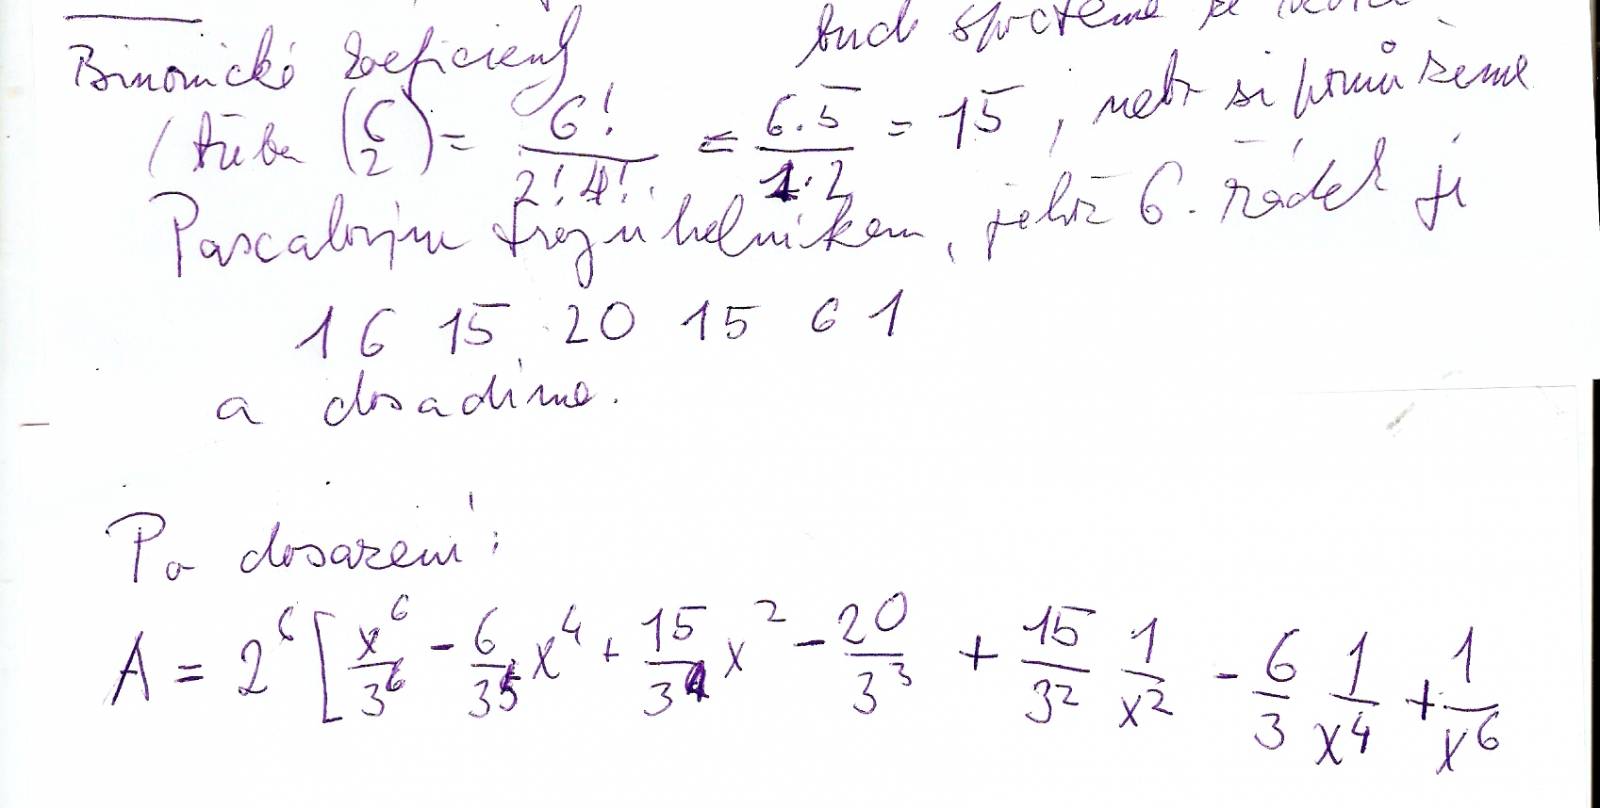 buď spočteme
Binomické koeficienty
(třeba (6 2) = 6!/2!4! = 6·5/1·2 = 15, nebo si pomůžeme
Pascalovým trojúhelníkem, jehož 6. řádek je
1 6 15 20 15 6 1
a dosadíme.
Po dosazení:
A = 2^6 [ x^6/3^6 - 6/3^5 x^4 + 15/3^4 x^2 - 20/3^3 + 15/3^2 1/x^2 - 6/3 1/x^4 + 1/x^6